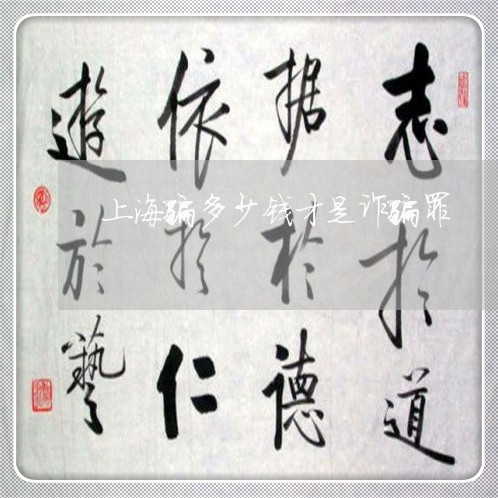 志於道
据於德
依於仁
遊於藝
上海骗多少钱才是诈骗罪